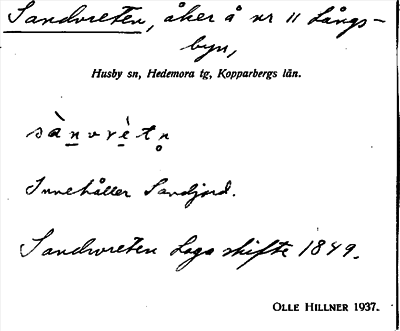 Sandvreten, åker å nr 11 Långs-
byn,
Husby sn, Hedemora tg, Kopparbergs län.
sànvrètn̥
Innehåller Sandjord.
Sandvreten Laga skifte 1849.
OLLE HILLNER 1937.